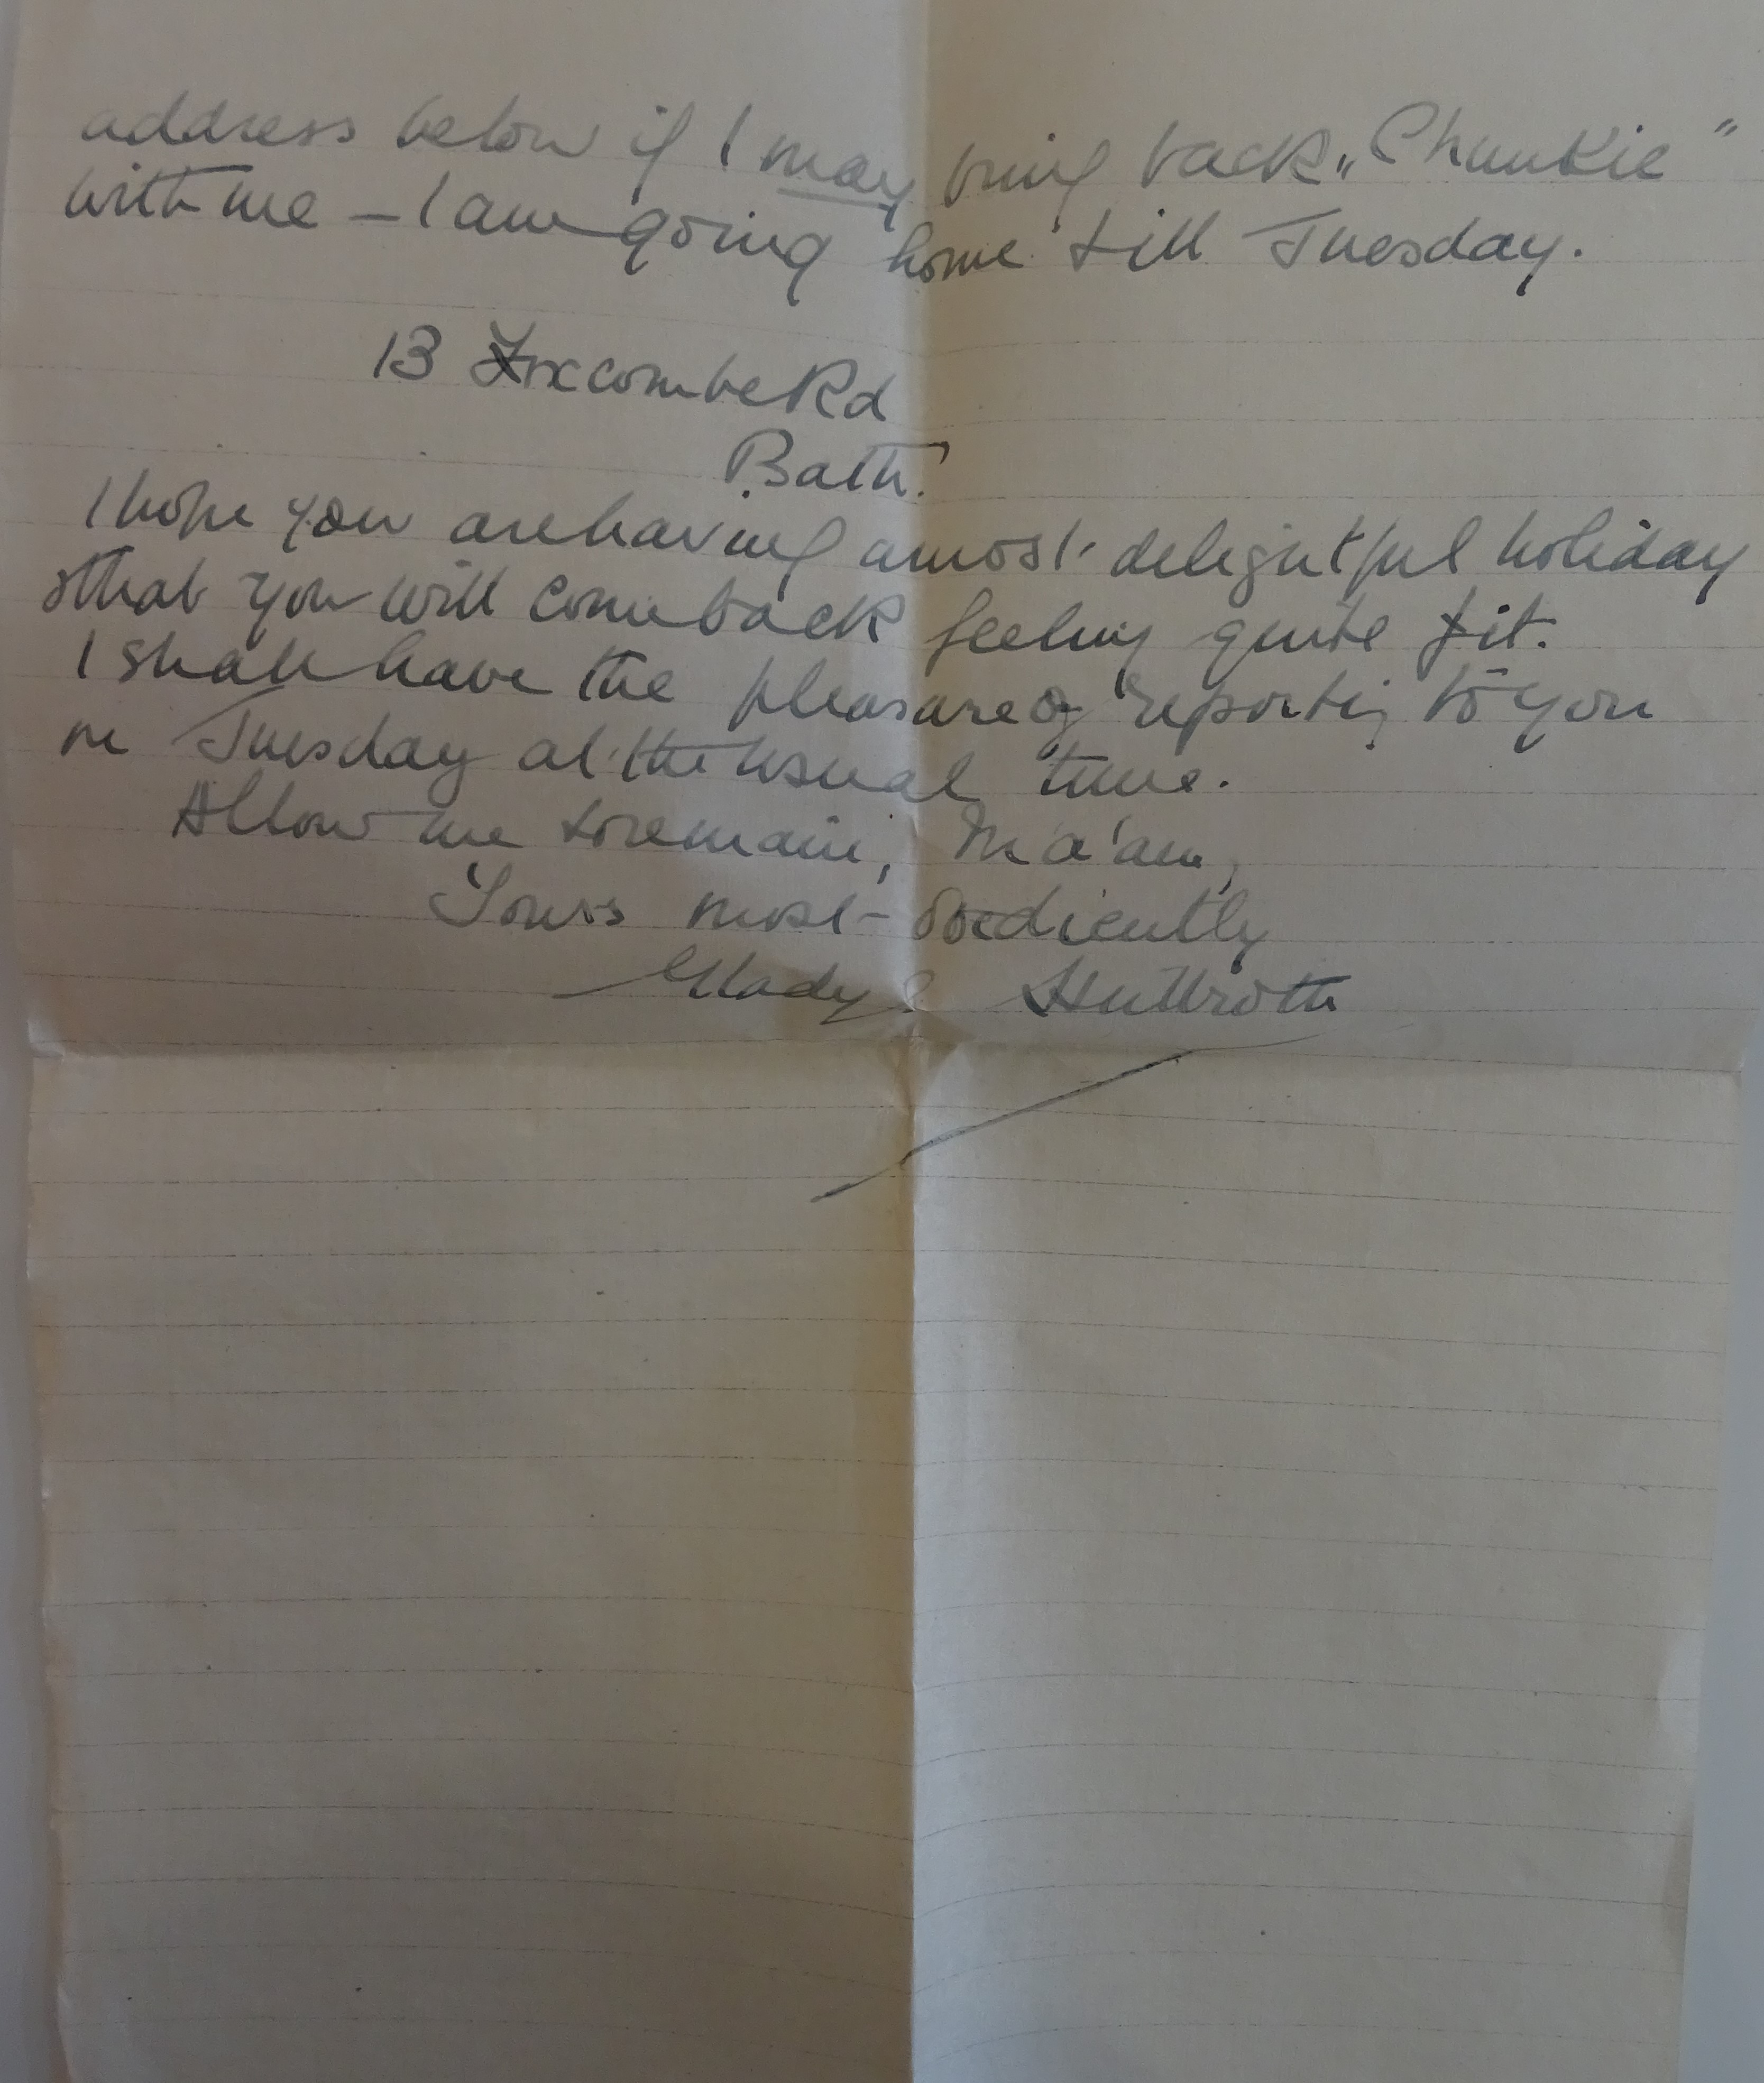 address below if I may bring back „Chunkie"
with me – I am going home till Tuesday.
13 Foxcombe Rd
Bath.
I hope you are having a most delightful holiday
& that you will come back feeling quite fit.
I shall have the pleasure of reporting to you
on Tuesday at the usual time.
Allow me to remain, Ma'am,
Yours most obediently
Gladys